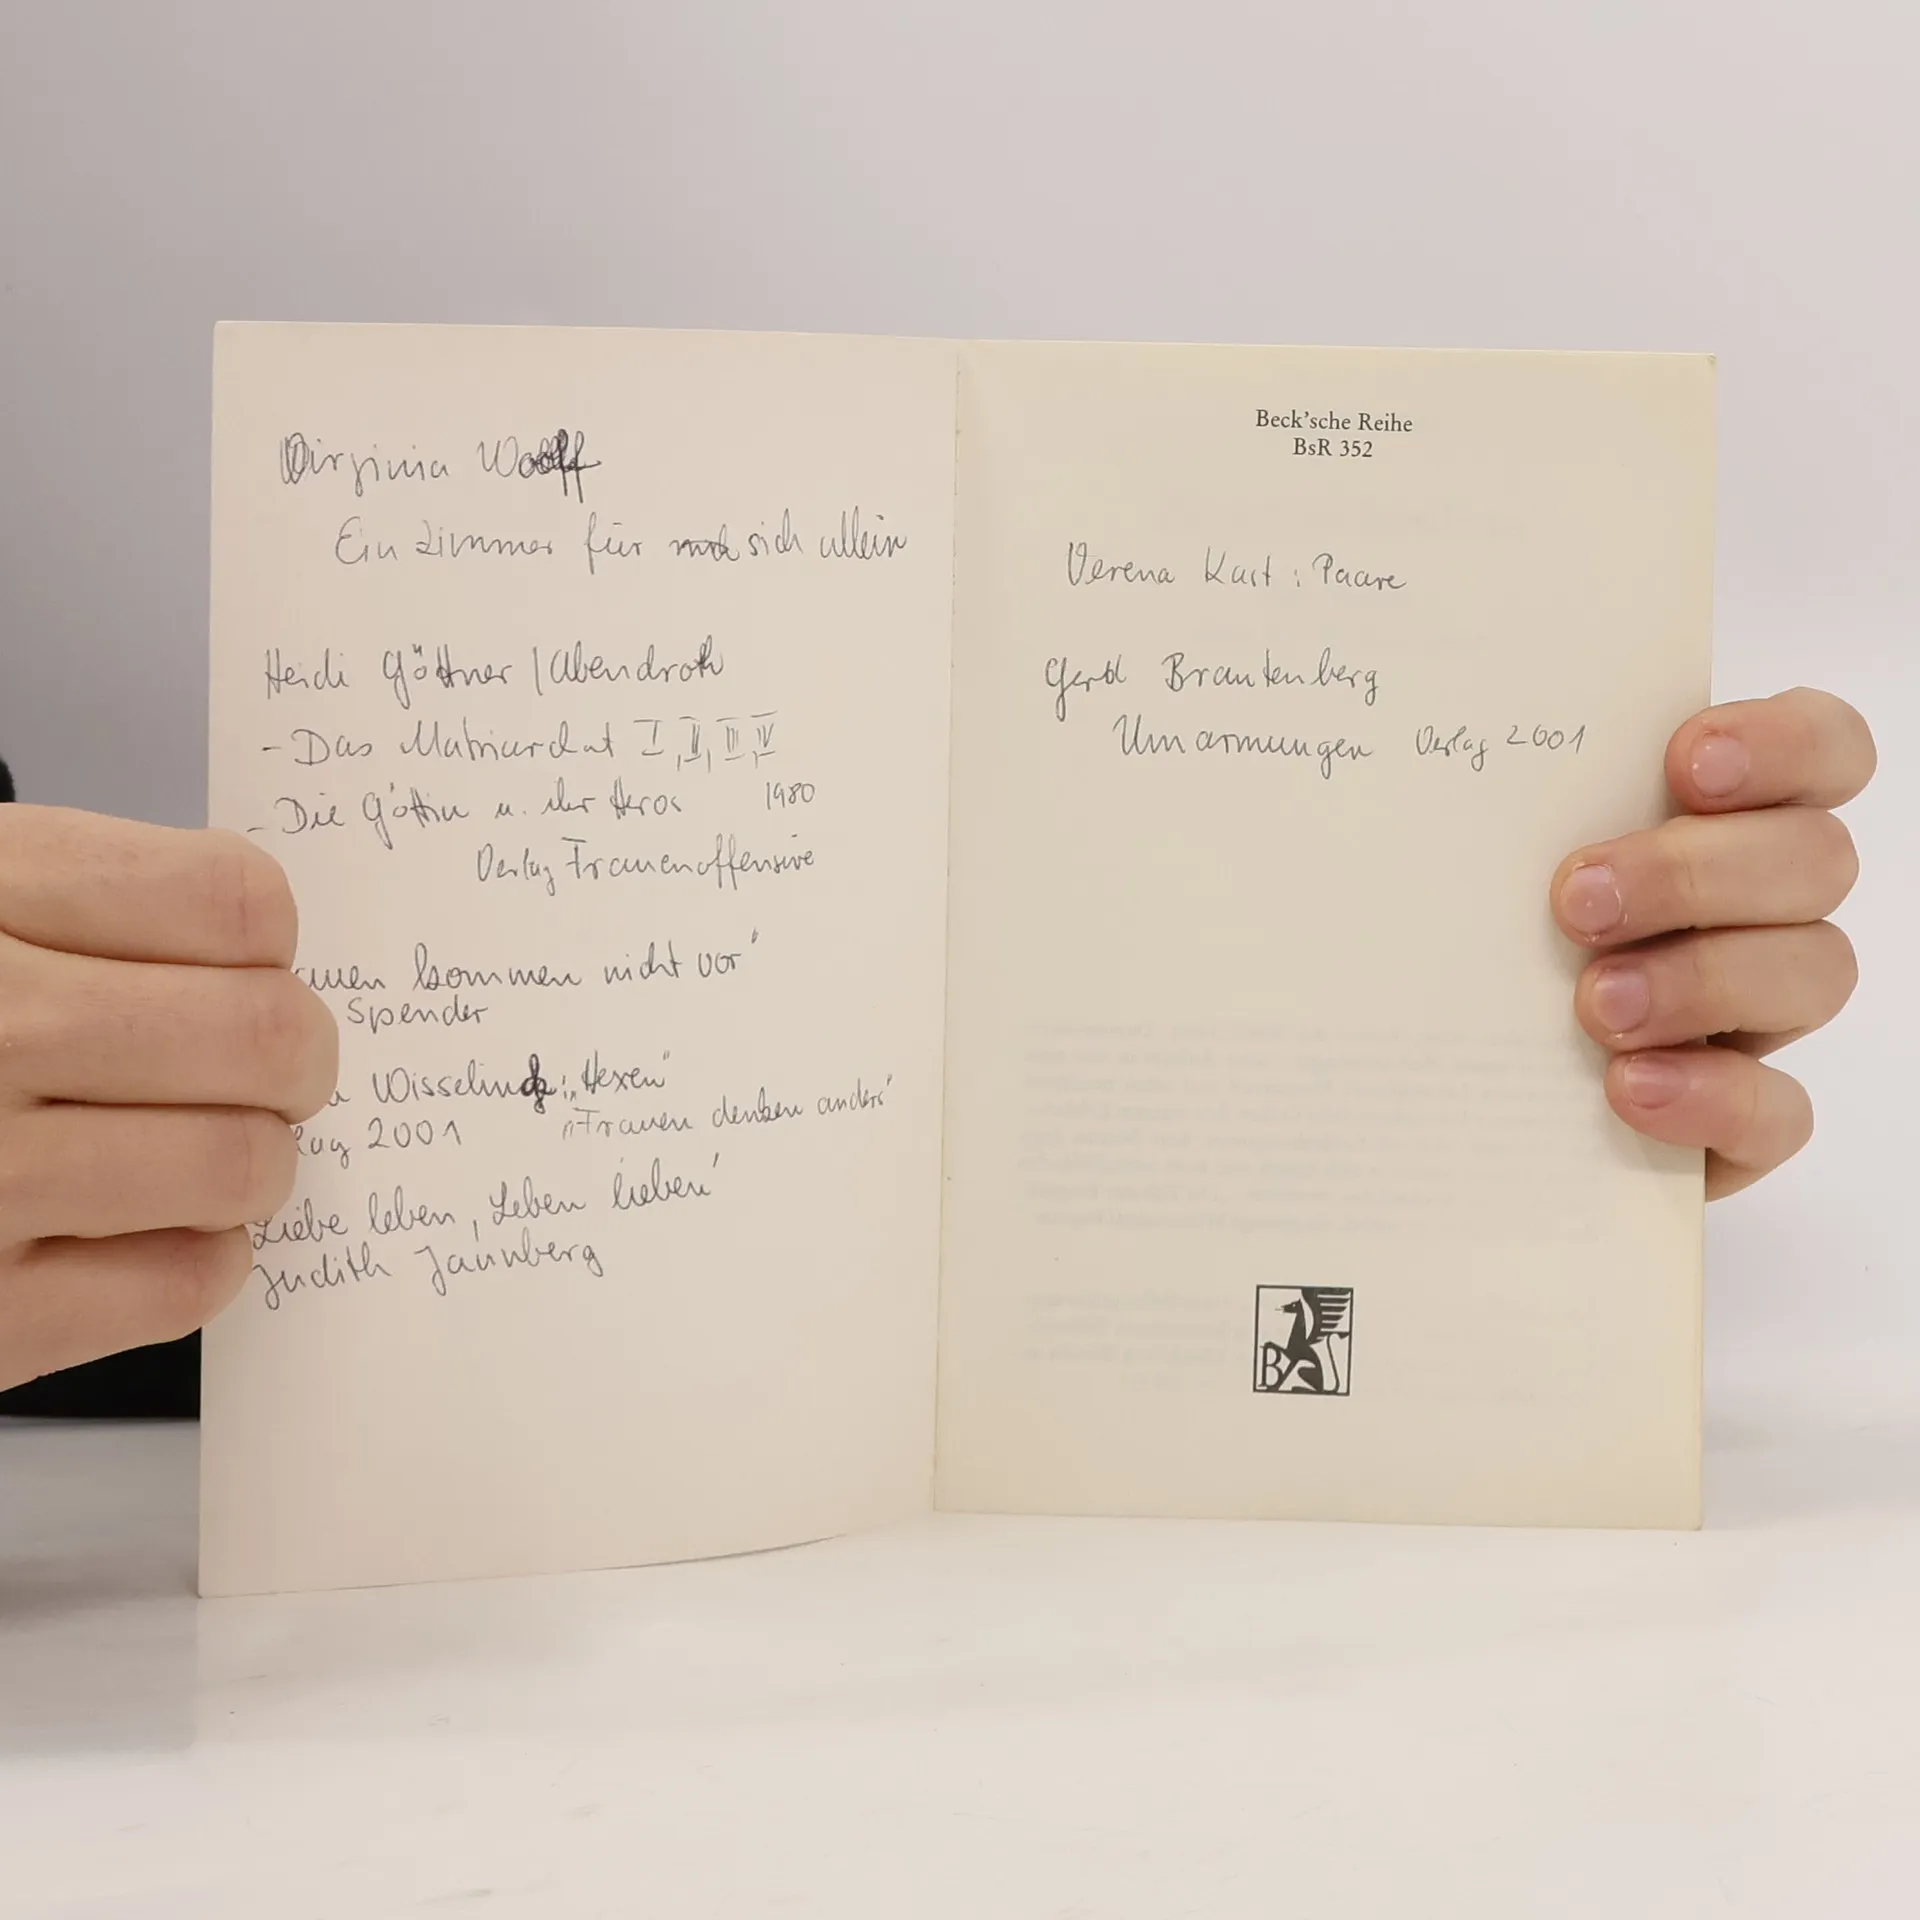 Virginia Woolf
Ein Zimmer für sich allein
Heidi Göttner / Abendroth
- Das Matriarchat I, II, III, IV
- Die Göttin u. ihr Heros 1980
Verlag Frauenoffensive
auen kommen nicht vor"
Spender
a Wisseling: „Hexen"
lag 2001 „Frauen denken anders"
Liebe leben, Leben lieben"
Judith Jannberg
Beck'sche Reihe
BsR 352
Verena Kast : Paare
Gerd Brantenberg
Umarmungen Verlag 2001
BSR